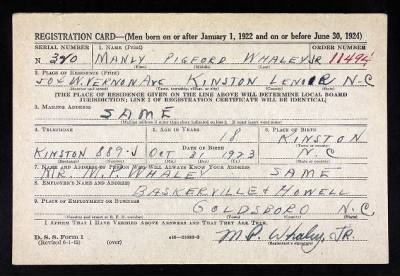 REGISTRATION CARD—(Men born on or after January 1, 1922 and on or before June 30, 1924)
SERIAL NUMBER 1. NAME (Print) ORDER NUMBER
N 320 MANLY PIGFORD WHALEY JR 11495
2. PLACE OF RESIDENCE (Print)
504 W. VERNON AVE KINSTON LENOIR N-C
[THE PLACE OF RESIDENCE GIVEN ON THE LINE ABOVE WILL DETERMINE LOCAL BOARD
JURISDICTION; LINE 2 OF REGISTRATION CERTIFICATE WILL BE IDENTICAL]
3. MAILING ADDRESS
SAME
[Mailing address if other than place indicated on line 2. If same insert word same]
4. TELEPHONE 5. AGE IN YEARS 6. PLACE OF BIRTH
18 KINSTON
DATE OF BIRTH
KINSTON 889-J OCT 31 1923 N.C.
7. NAME AND ADDRESS OF PERSON WHO WILL ALWAYS KNOW YOUR ADDRESS
MR. M.P. WHALEY SAME
8. EMPLOYER'S NAME AND ADDRESS
BASKERVILLE & HOWELL
9. PLACE OF EMPLOYMENT OR BUSINESS
GOLDSBORO N.C.
I AFFIRM THAT I HAVE VERIFIED ABOVE ANSWERS AND THAT THEY ARE TRUE.
D. S. S. Form 1
(Revised 6-1-42) (over)
M.P. Whaley, JR.
(Registrant's signature)